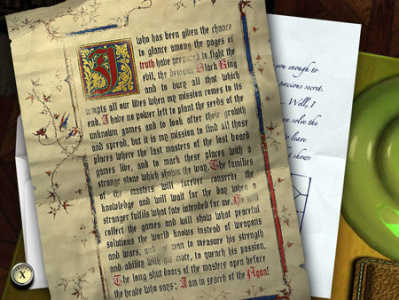 I who has been given the chance
to glance among the pages of
truth have prepared to fight the
evil, the Black King
and to bury all that which
tempts all our lives when my mission comes to its
end. I have no power left to plant the seeds of the
unknown games and to look after their growth
and spread, but it is my mission to find all those
places where the last masters of the lost board
games live, and to mark these places with a
strange stew which shows the way. The families
of the masters will forever conserve the
knowledge and will wait for the day when a
stranger fulfils what fate intended for me. He will
collect the games and will show what peaceful
solutions the world knows instead of weapons
and wars, man to measure his strength
and ability with his mate, to quench his passion.
The long shut doors of the masters open before
the brave who says: I am in search of the Agon!
you enough to
precious secret.
Well, I
solve the
to leave
shows
X